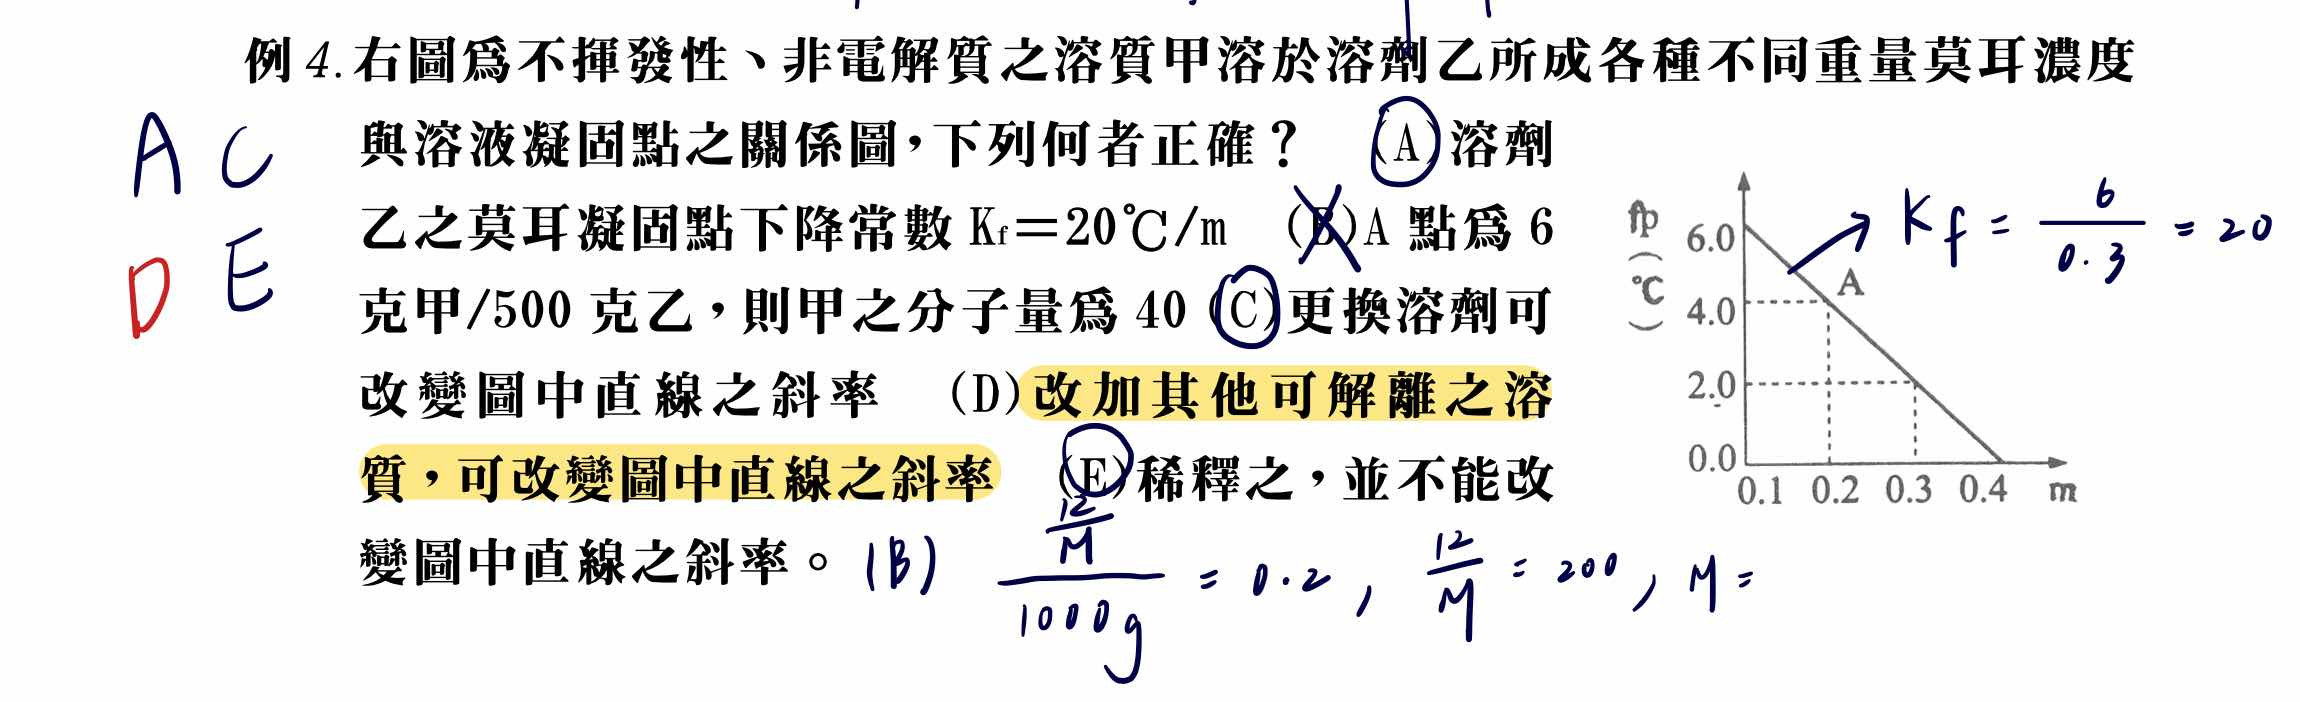 例 4. 右圖爲不揮發性、非電解質之溶質甲溶於溶劑乙所成各種不同重量莫耳濃度
與溶液凝固點之關係圖，下列何者正確？ (A)溶劑
乙之莫耳凝固點下降常數 Kf＝20℃/m (B)A 點爲 6
克甲/500 克乙，則甲之分子量爲 40 (C)更換溶劑可
改變圖中直線之斜率 (D)改加其他可解離之溶
質，可改變圖中直線之斜率 (E)稀釋之，並不能改
變圖中直線之斜率。
A C
D E
fp
(℃)
6.0
4.0
2.0
0.0
A
0.1 0.2 0.3 0.4 m
Kf = 6/0.3 = 20
(B) 12/M / 1000g = 0.2 , 12/M = 200 , M =